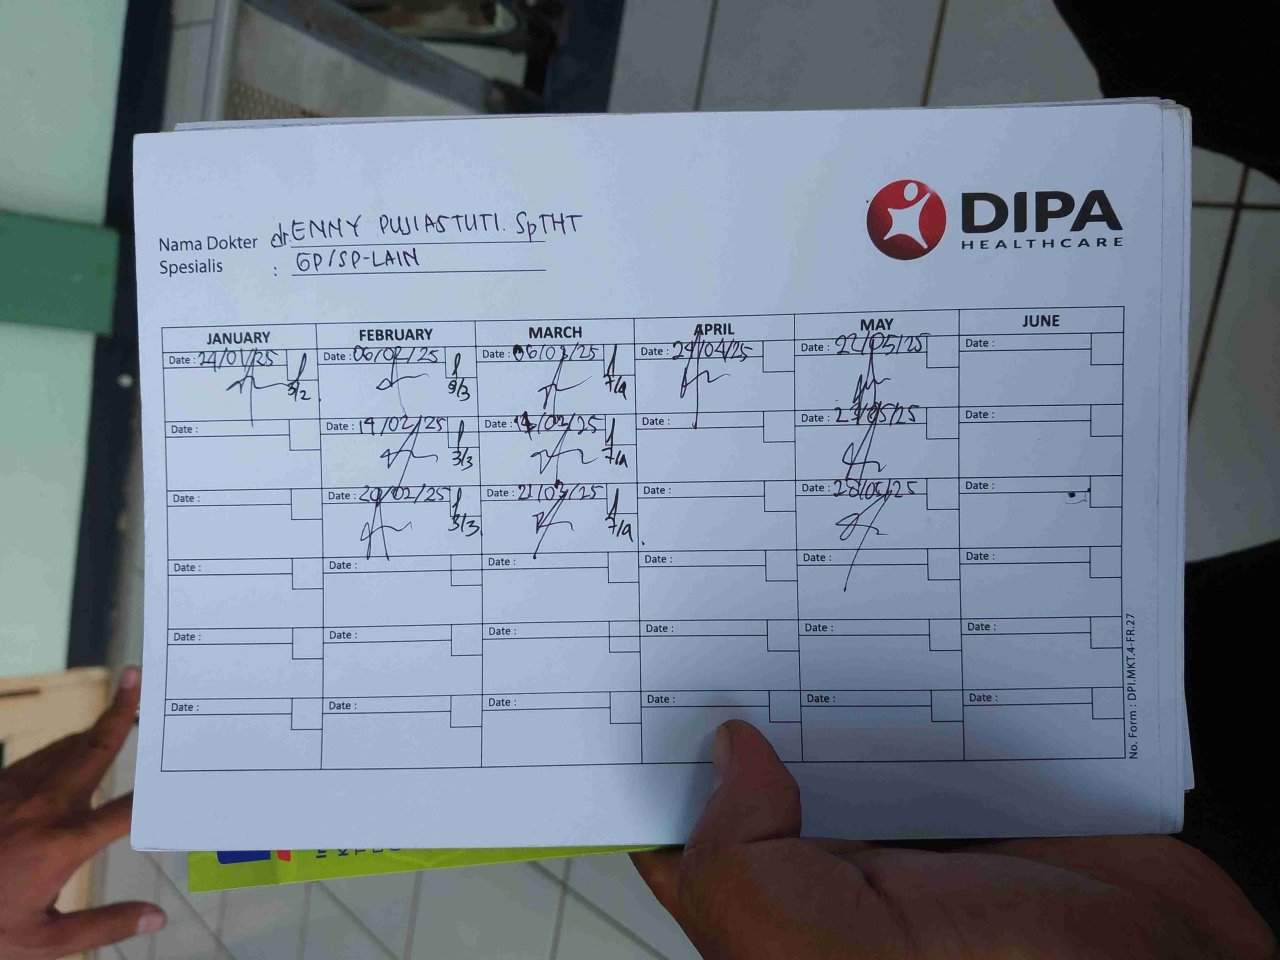 DIPA
HEALTHCARE
Nama Dokter dr. ENNY PUJIASTUTI. SpTHT
Spesialis : GP/SP-LAIN
JANUARY FEBRUARY MARCH APRIL MAY JUNE
Date : 24/01/25 Date : 06/02/25 Date : 06/03/25 Date : 29/04/25 Date : 22/05/25 Date :
3/2 3/3 7/4
Date : Date : 14/02/25 Date : Date : Date : 27/05/25 Date :
3/3 7/4
Date : Date : 20/02/25 Date : 21/03/25 Date : Date : 28/05/25 Date :
3/3 7/4
Date : Date : Date : Date : Date : Date :
Date : Date : Date : Date : Date : Date :
Date : Date : Date : Date : Date : Date :
No. Form : DPI.MKT.4-FR.27